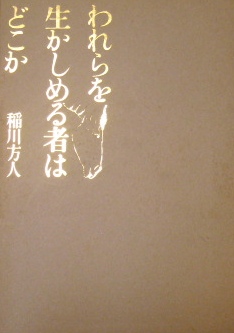 われらを
生かしめる者は
どこか
稲川方人